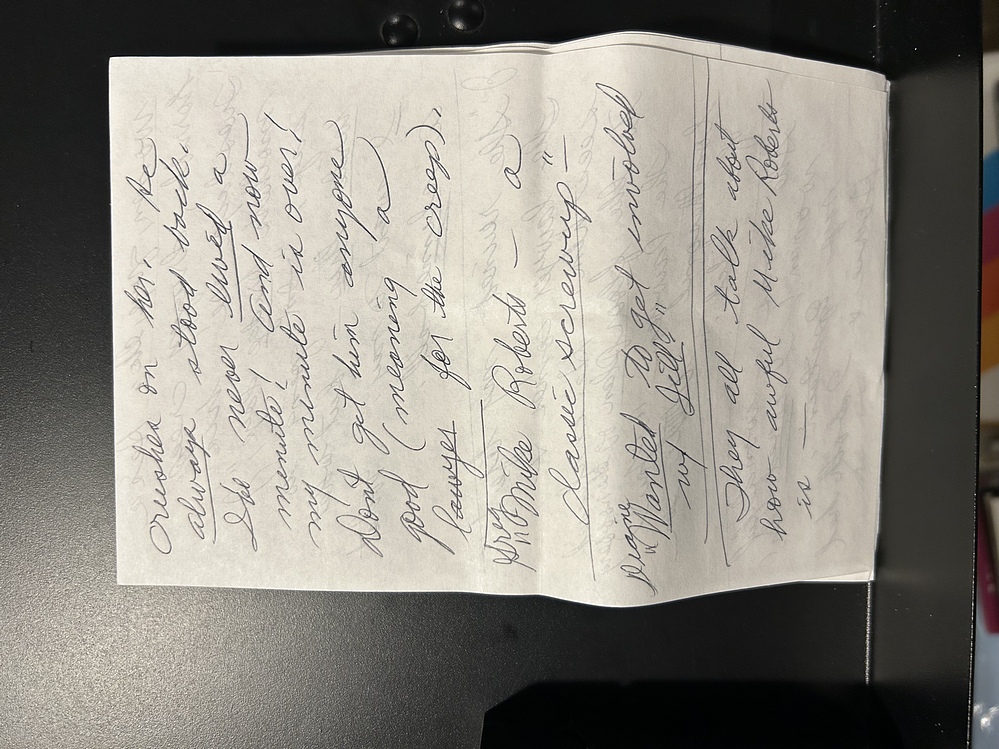 crushes on her. He
always stood back.
She never loved a
minute! And now
my minute is over!
Dont get him anyone
good (meaning a
lawyer for the creep).
Greg
"Mike Roberts — a
classic screwing" —
Diane
"Wanted to get involved
w/ Jill"
They all talk about
how awful Mike Roberts
is —